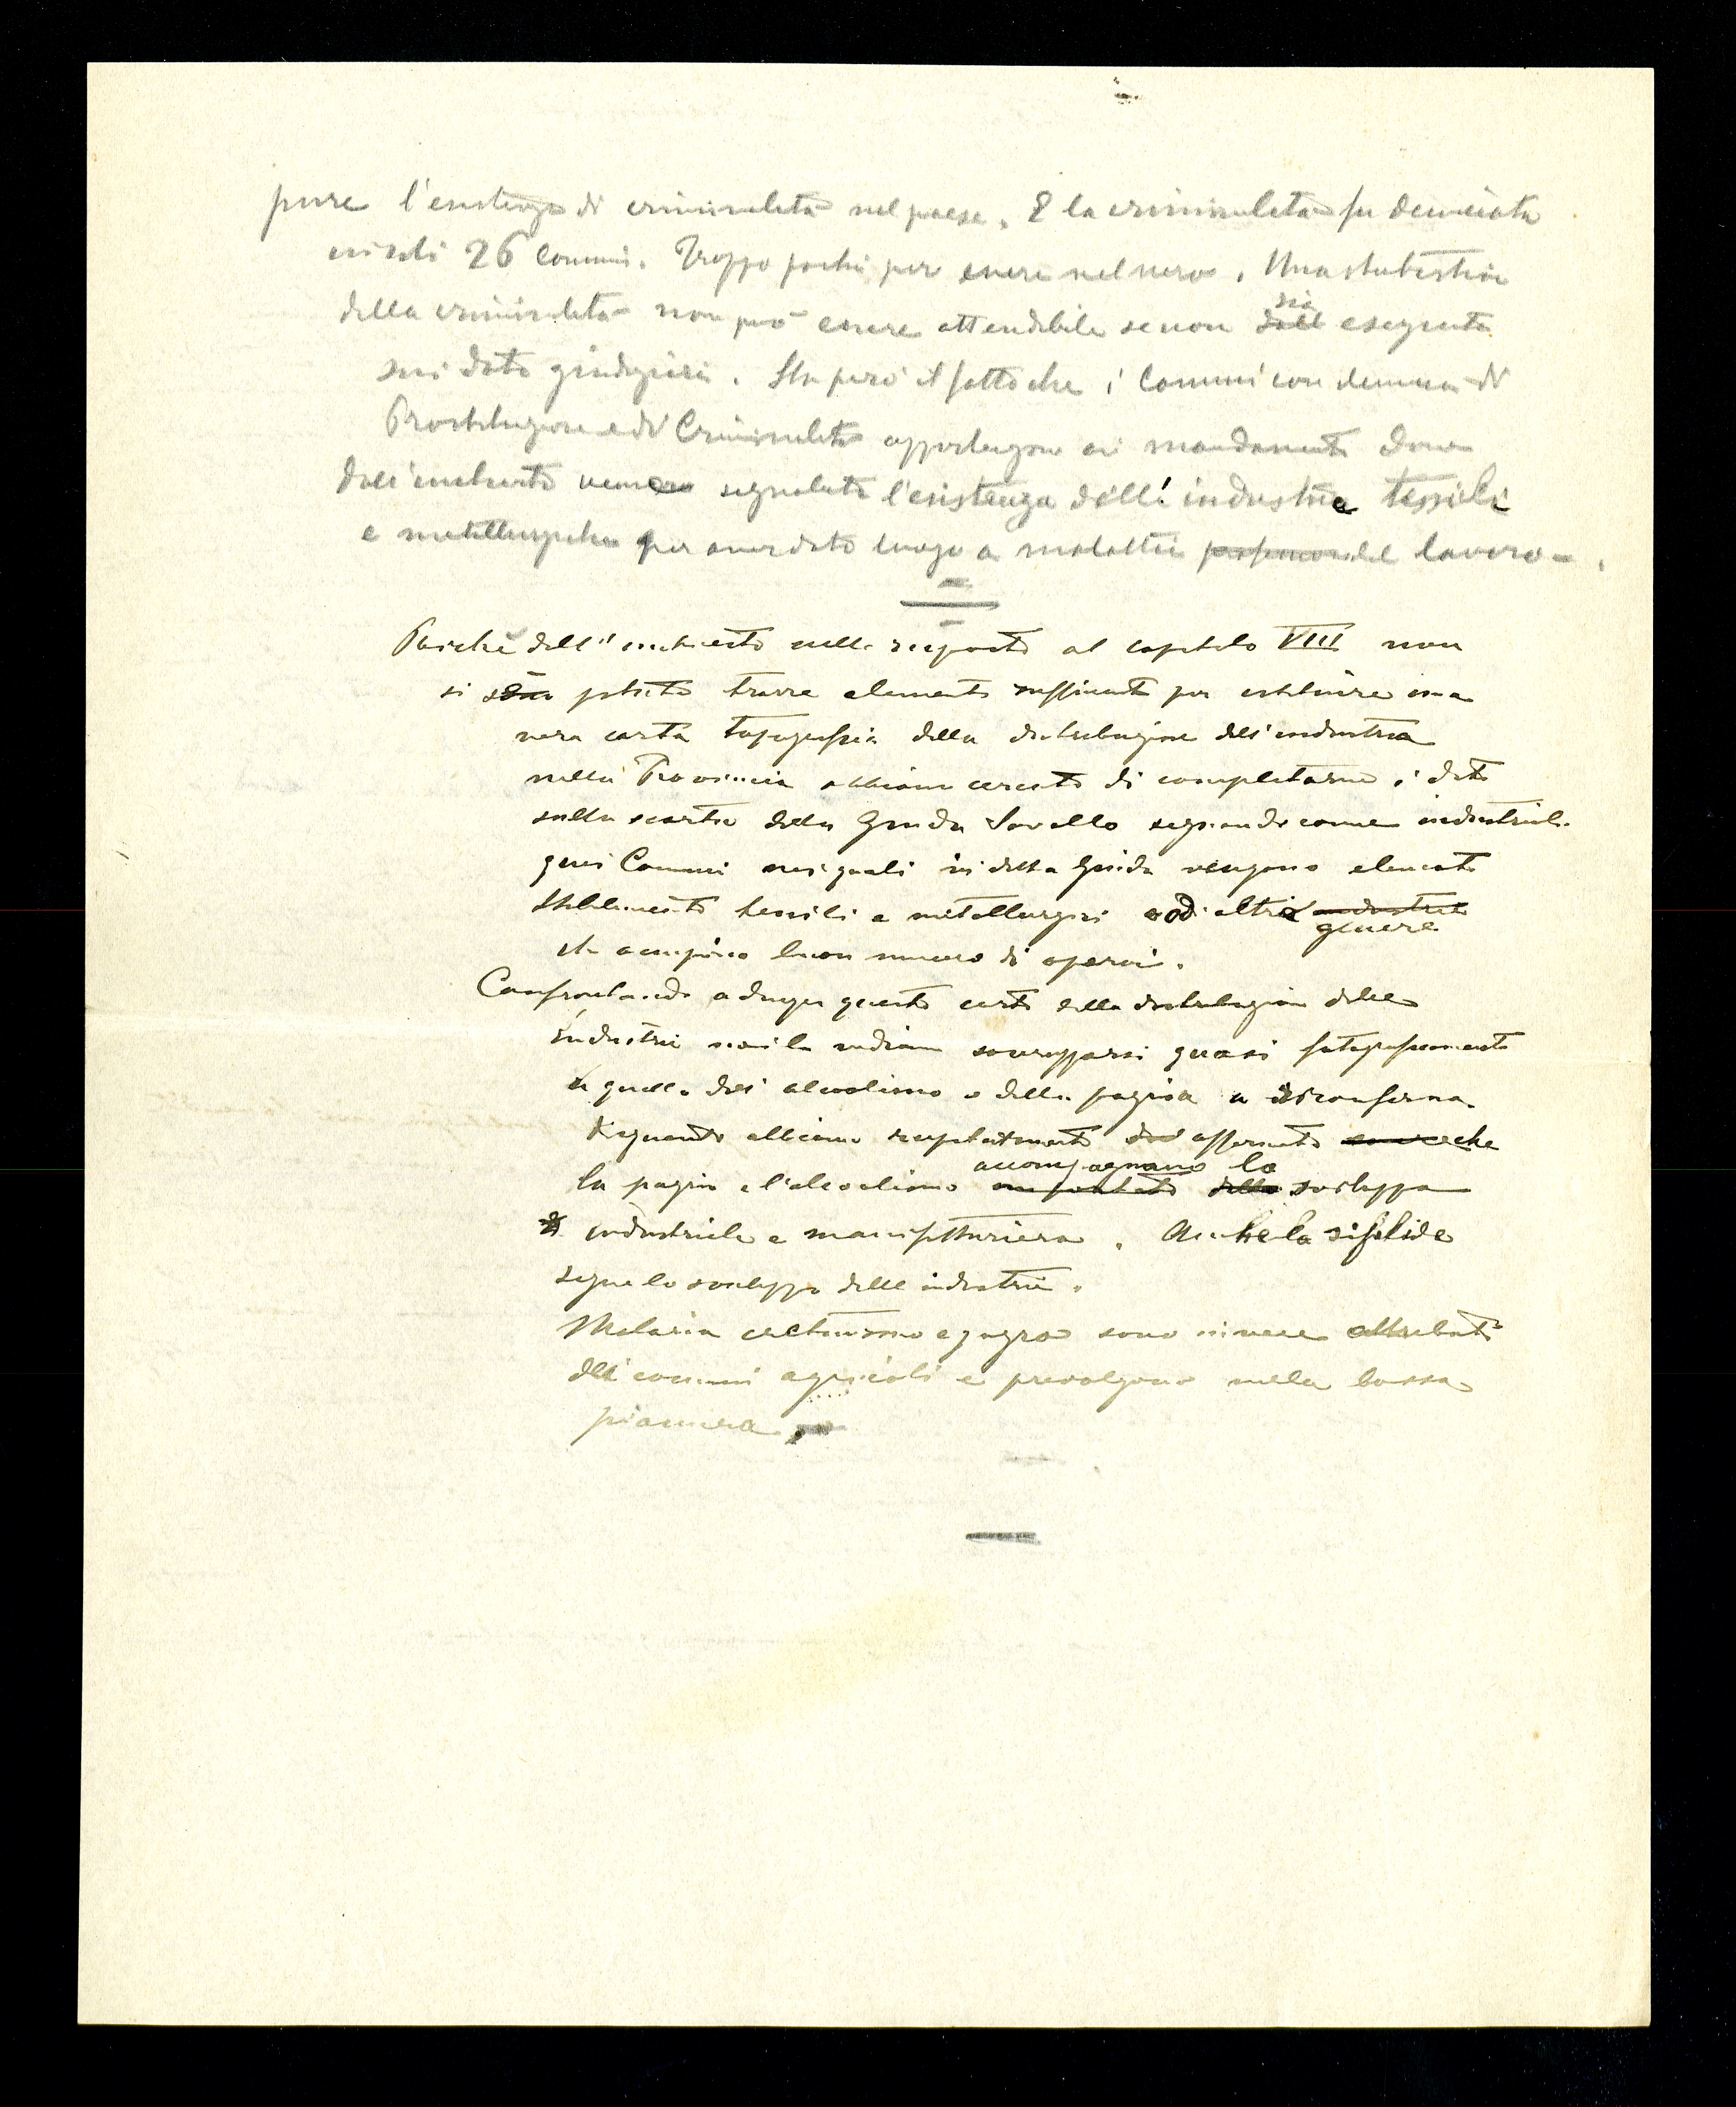 pure l'esistenza di criminalità nel paese. E la criminalità fu denunciata
in soli 26 Comuni. Troppo pochi per essere nel vero. Una statistica
della criminalità non può essere attendibile se non sia eseguita
sui dati giudiziari. Sta però il fatto che i Comuni con denuncia di
Prostituzione e di Criminalità appartengono ai mandamenti dove
dall'inchiesta venne segnalata l'esistenza dell'industria tessili
e metallurgiche per aver dato luogo a malattie del lavoro.
Poichè dall'inchiesta nelle risposte al capitolo VIII non
si potuto trarre elementi sufficienti per istituire una
vera carta topografia della distribuzione dell'industria
nella Provincia abbiamo cercato di completarne i dati
sulla scorta della Guida Savallo segnando come industriali
quei Comuni nei quali in detta Guida vengono elencati
Stabilimenti tessili e metallurgici o di altro genere
che occupino buon numero di operai.
Confrontando adunque questa carta della distribuzione delle
industrie noi la vediamo sovrapporsi quasi
a quella dell'alcoolismo e della pazzia a riconferma
di quanto abbiamo ripetutamente affermato che
la pazzia e l'alcoolismo accompagnano lo sviluppo
industriale e manifatturiero. Anche la sifilide
segue lo sviluppo delle industrie.
Malaria cretinismo e gozzo sono invece attributi
dei comuni agricoli e prevalgono nella bassa
pianura.